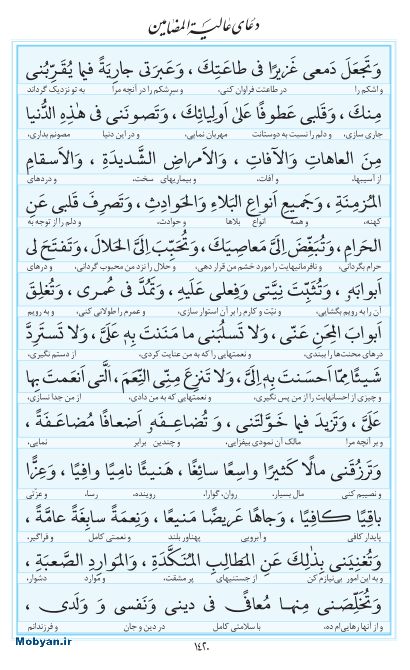 دعای عالیة المضامین
وَتَجعَلَ دَمعی غَزیرًا فی طاعَتِكَ ، وَعَبرَتی جارِیَةً فیما یُقَرِّبُنی
و اشکم را در طاعتت فراوان کنی، و سرشکم را در آنچه مرا به تو نزدیک گرداند
مِنكَ ، وَقَلبی عَطوفًا عَلیٰ اَولِیائِكَ ، وَتَصونَنی فی هٰذِهِ الدُّنیا
جاری سازی، و دلم را نسبت به دوستانت مهربان نمایی، و در این دنیا مصونم بداری،
مِنَ العاهاتِ وَالآفاتِ ، وَالاَمراضِ الشَّدیدَةِ ، وَالاَسقامِ
از آسیبها، و آفات، و بیماریهای سخت، و دردهای
المُزمِنَةِ ، وَجَمیعِ اَنواعِ البَلاءِ وَالحَوادِثِ ، وَتَصرِفَ قَلبی عَنِ
کهنه، و همه انواع بلاها و حوادث، و دلم را از توجه به
الحَرامِ ، وَتُبَغِّضَ اِلَیَّ مَعاصِیَكَ ، وَتُحَبِّبَ اِلَیَّ الحَلالَ ، وَتَفتَحَ لی
حرام بگردانی، و نافرمانیهایت را مورد خشم من قرار دهی، و حلال را نزد من محبوب گردانی، و درهای
اَبوابَهُ ، وَتُثَبِّتَ نِیَّتی وَفِعلی عَلَیهِ ، وَتَمُدَّ فی عُمری ، وَتُغلِقَ
آن را به رویم بگشایی، و نیّت و کارم را بر آن استوار سازی، و عمرم را طولانی کنی، و به رویم
اَبوابَ المِحَنِ عَنّی ، وَلا تَسلُبَنی ما مَنَنتَ بِهِ عَلَیَّ ، وَلا تَستَرِدَّ
درهای محنت‌ها را ببندی، و نعمتهایی را که به من عنایت کردی، از دستم نگیری،
شَیئًا مِمّا اَحسَنتَ بِهِ اِلَیَّ ، وَلا تَنزِعَ مِنِّی النِّعَمَ ، الَّتی اَنعَمتَ بِها
و چیزی از احسانهایت را از من پس نگیری، و نعمتهایی که به من دادی، از من جدا نسازی،
عَلَیَّ ، وَتَزیدَ فیما خَوَّلتَنی ، وَ تُضاعِفَهُ اَضعافًا مُضاعَفَةً ،
و بر آنچه مرا مالک آن نمودی بیفزایی، و چندین برابر نمایی،
وَتَرزُقَنی مالًا كَثیرًا واسِعًا سائِغًا ، هَنیئًا نامِیًا وافِیًا ، وَعِزًّا
و نصیبم کنی مال بسیار، روان، گوارا، روینده، رسا، و عزّتی
باقِیًا كافِیًا ، وَجاهًا عَریضًا مَنیعًا ، وَنِعمَةً سابِغَةً عامَّةً ،
پایدار کافی و آبرویی پهناور بلند و نعمتی کامل و فراگیر،
وَتُغنِیَنی بِذٰلِكَ عَنِ المَطالِبِ المُنَكَّدَةِ ، وَالمَوارِدِ الصَّعبَةِ ،
و به این امور بی‌نیازم کنی از جستنیهای پر مشقت، و موارد دشوار،
وَتُخَلِّصَنی مِنها مُعافًی فی دینی وَنَفسی وَ وَلَدی ،
و از آنها رهایی‌ام ده، با سلامتی کامل در دین و جان و فرزندانم
Mobyan.ir
۱۴۲۰